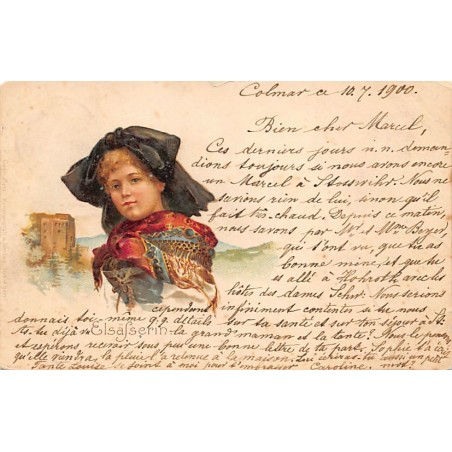 Colmar ce 10.7.1900.
Bien cher Marcel,
Ces derniers jours n.n. deman-
dions toujours si nous avons encore
un Marcel à Stosswihr. Nous ne
savions rien de lui, sinon qu'il
fait très chaud. Depuis ce matin,
nous savons par Mr. et Mme Boyer,
qui t'ont vu, que tu as
bonne mine, et que tu
es allé à Hohroth avec les
hôtes des dames Scher. Nous serions
cependant infiniment contentes si tu nous
donnais toi-même q.q. détails sur ta santé et sur ton séjour à St.
tu déjà la grand'maman et la tante? Nous le
et espérons recevoir sous peu une bonne lettre de ta part. Sophie t'a
qu'elle viendra, la pluie l'a retenue à la maison. Lui écriras-tu aussi un petit
Tante Louise se joint à moi pour t'embrasser Caroline. mot?
Elsässerin